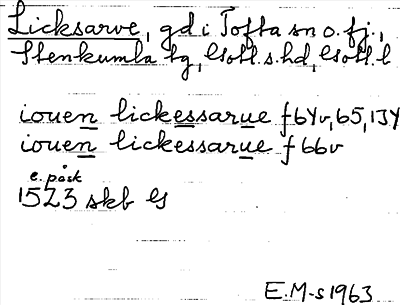 Licksarve, gd i Tofta sn o. fj.,
Stenkumla tg, Gotl. s. hd, Gotl. l
iouen lickessarue f 64v, 65, 134
iouen lickessarue f 66v
e. påsk
1523 skb G
E.M-s 1963